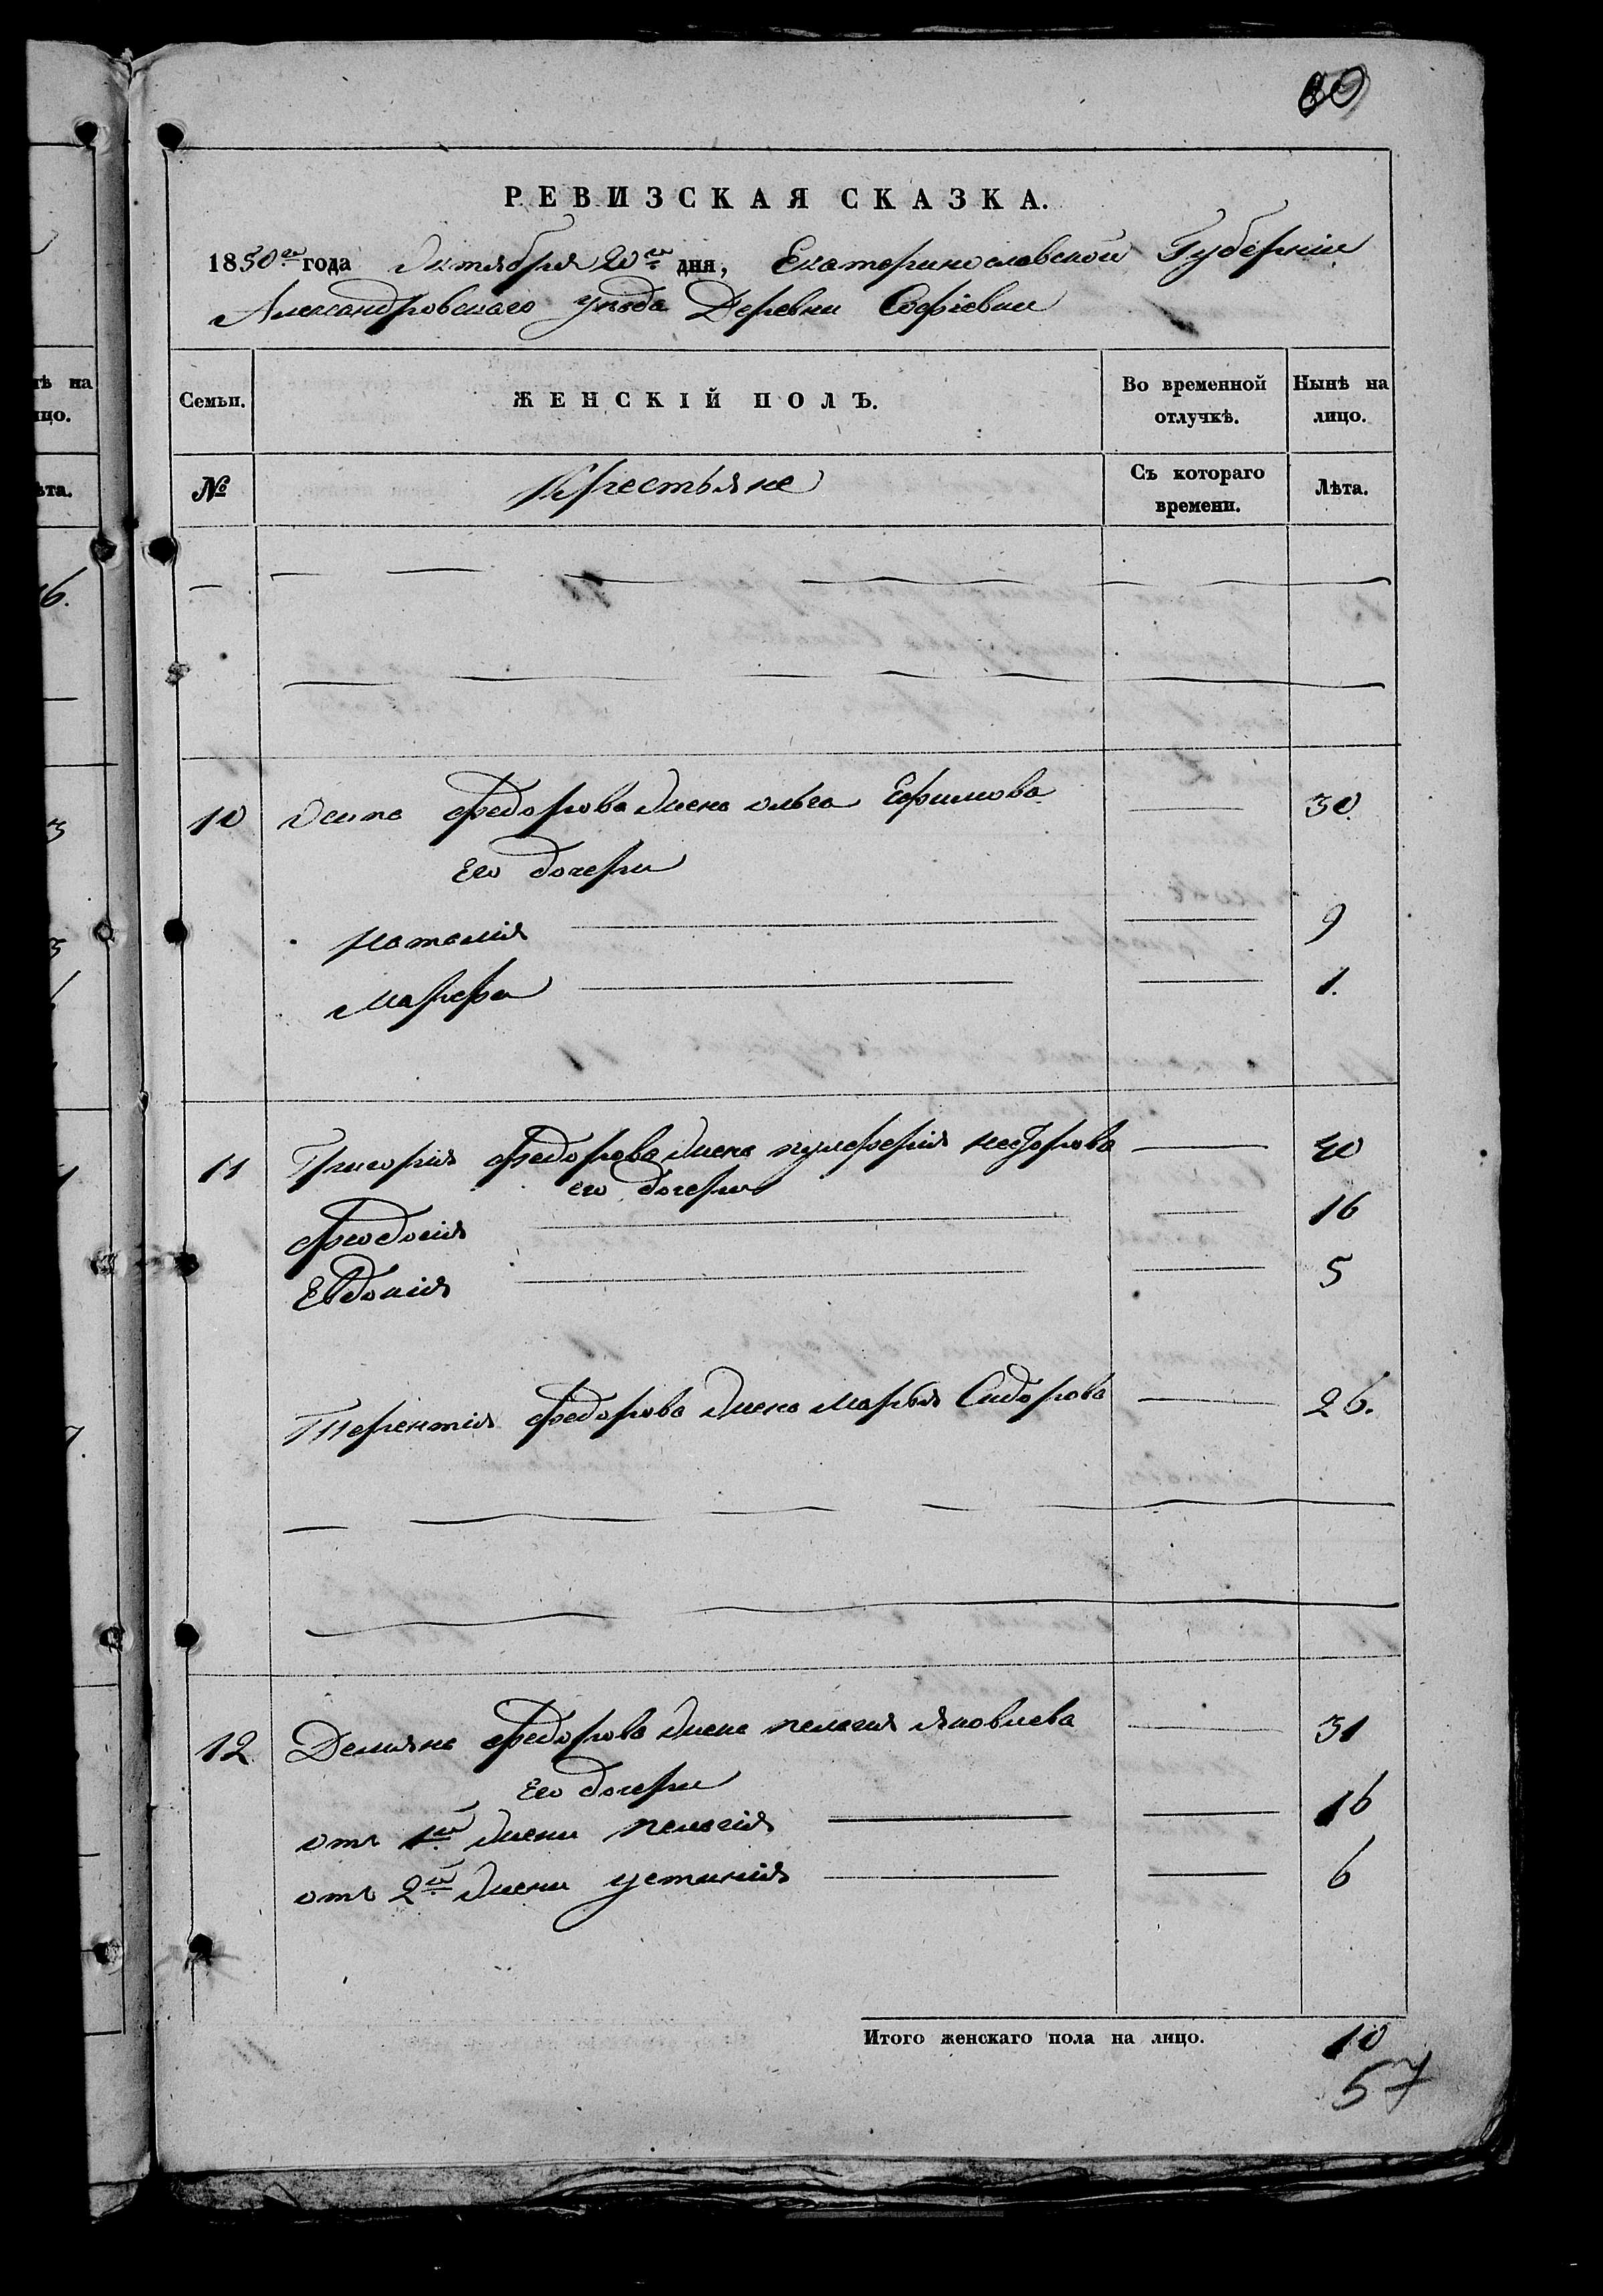 80
РЕВИЗСКАЯ СКАЗКА.
1850го года Октября 20го дня, Екатеринославской Губернии
Александровскаго уѣзда Деревни Софіевки
Семьи. ЖЕНСКІЙ ПОЛЪ. Во временной отлучкѣ. Нынѣ на лицо.
№ Крестьяне Съ котораго времени. Лѣта.
10 Осипа Федорова жена ольга Ефимова 30
Его дочери
наталия 9
Марфа 1.
11 Григория Федорова жена пулхерия несторова 40
его дочери
Феодосия 16
Евдокия 5
Терентия Федорова жена марья Сидорова 26.
12 Демьяна Федорова жена пелагия яковлева 31
Его дочери
отъ 1й жены пелагия 16
отъ 2й жены устиния 6
Итого женскаго пола на лицо. 10
57